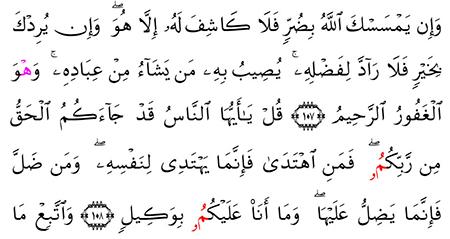 وَإِن يَمْسَسْكَ ٱللَّهُ بِضُرٍّۢ فَلَا كَاشِفَ لَهُۥٓ إِلَّا هُوَۖ وَإِن يُرِدْكَ
بِخَيْرٍۢ فَلَا رَآدَّ لِفَضْلِهِۦۚ يُصِيبُ بِهِۦ مَن يَشَآءُ مِنْ عِبَادِهِۦۚ وَهْوَ
ٱلْغَفُورُ ٱلرَّحِيمُ ١٠٧ قُلْ يَـٰٓأَيُّهَا ٱلنَّاسُ قَدْ جَآءَكُمُ ٱلْحَقُّ
مِن رَّبِّكُمُۥۖ فَمَنِ ٱهْتَدَىٰ فَإِنَّمَا يَهْتَدِى لِنَفْسِهِۦۖ وَمَن ضَلَّ
فَإِنَّمَا يَضِلُّ عَلَيْهَاۖ وَمَآ أَنَا۠ عَلَيْكُمُۥ بِوَكِيلٍۢ ١٠٨ وَٱتَّبِعْ مَا